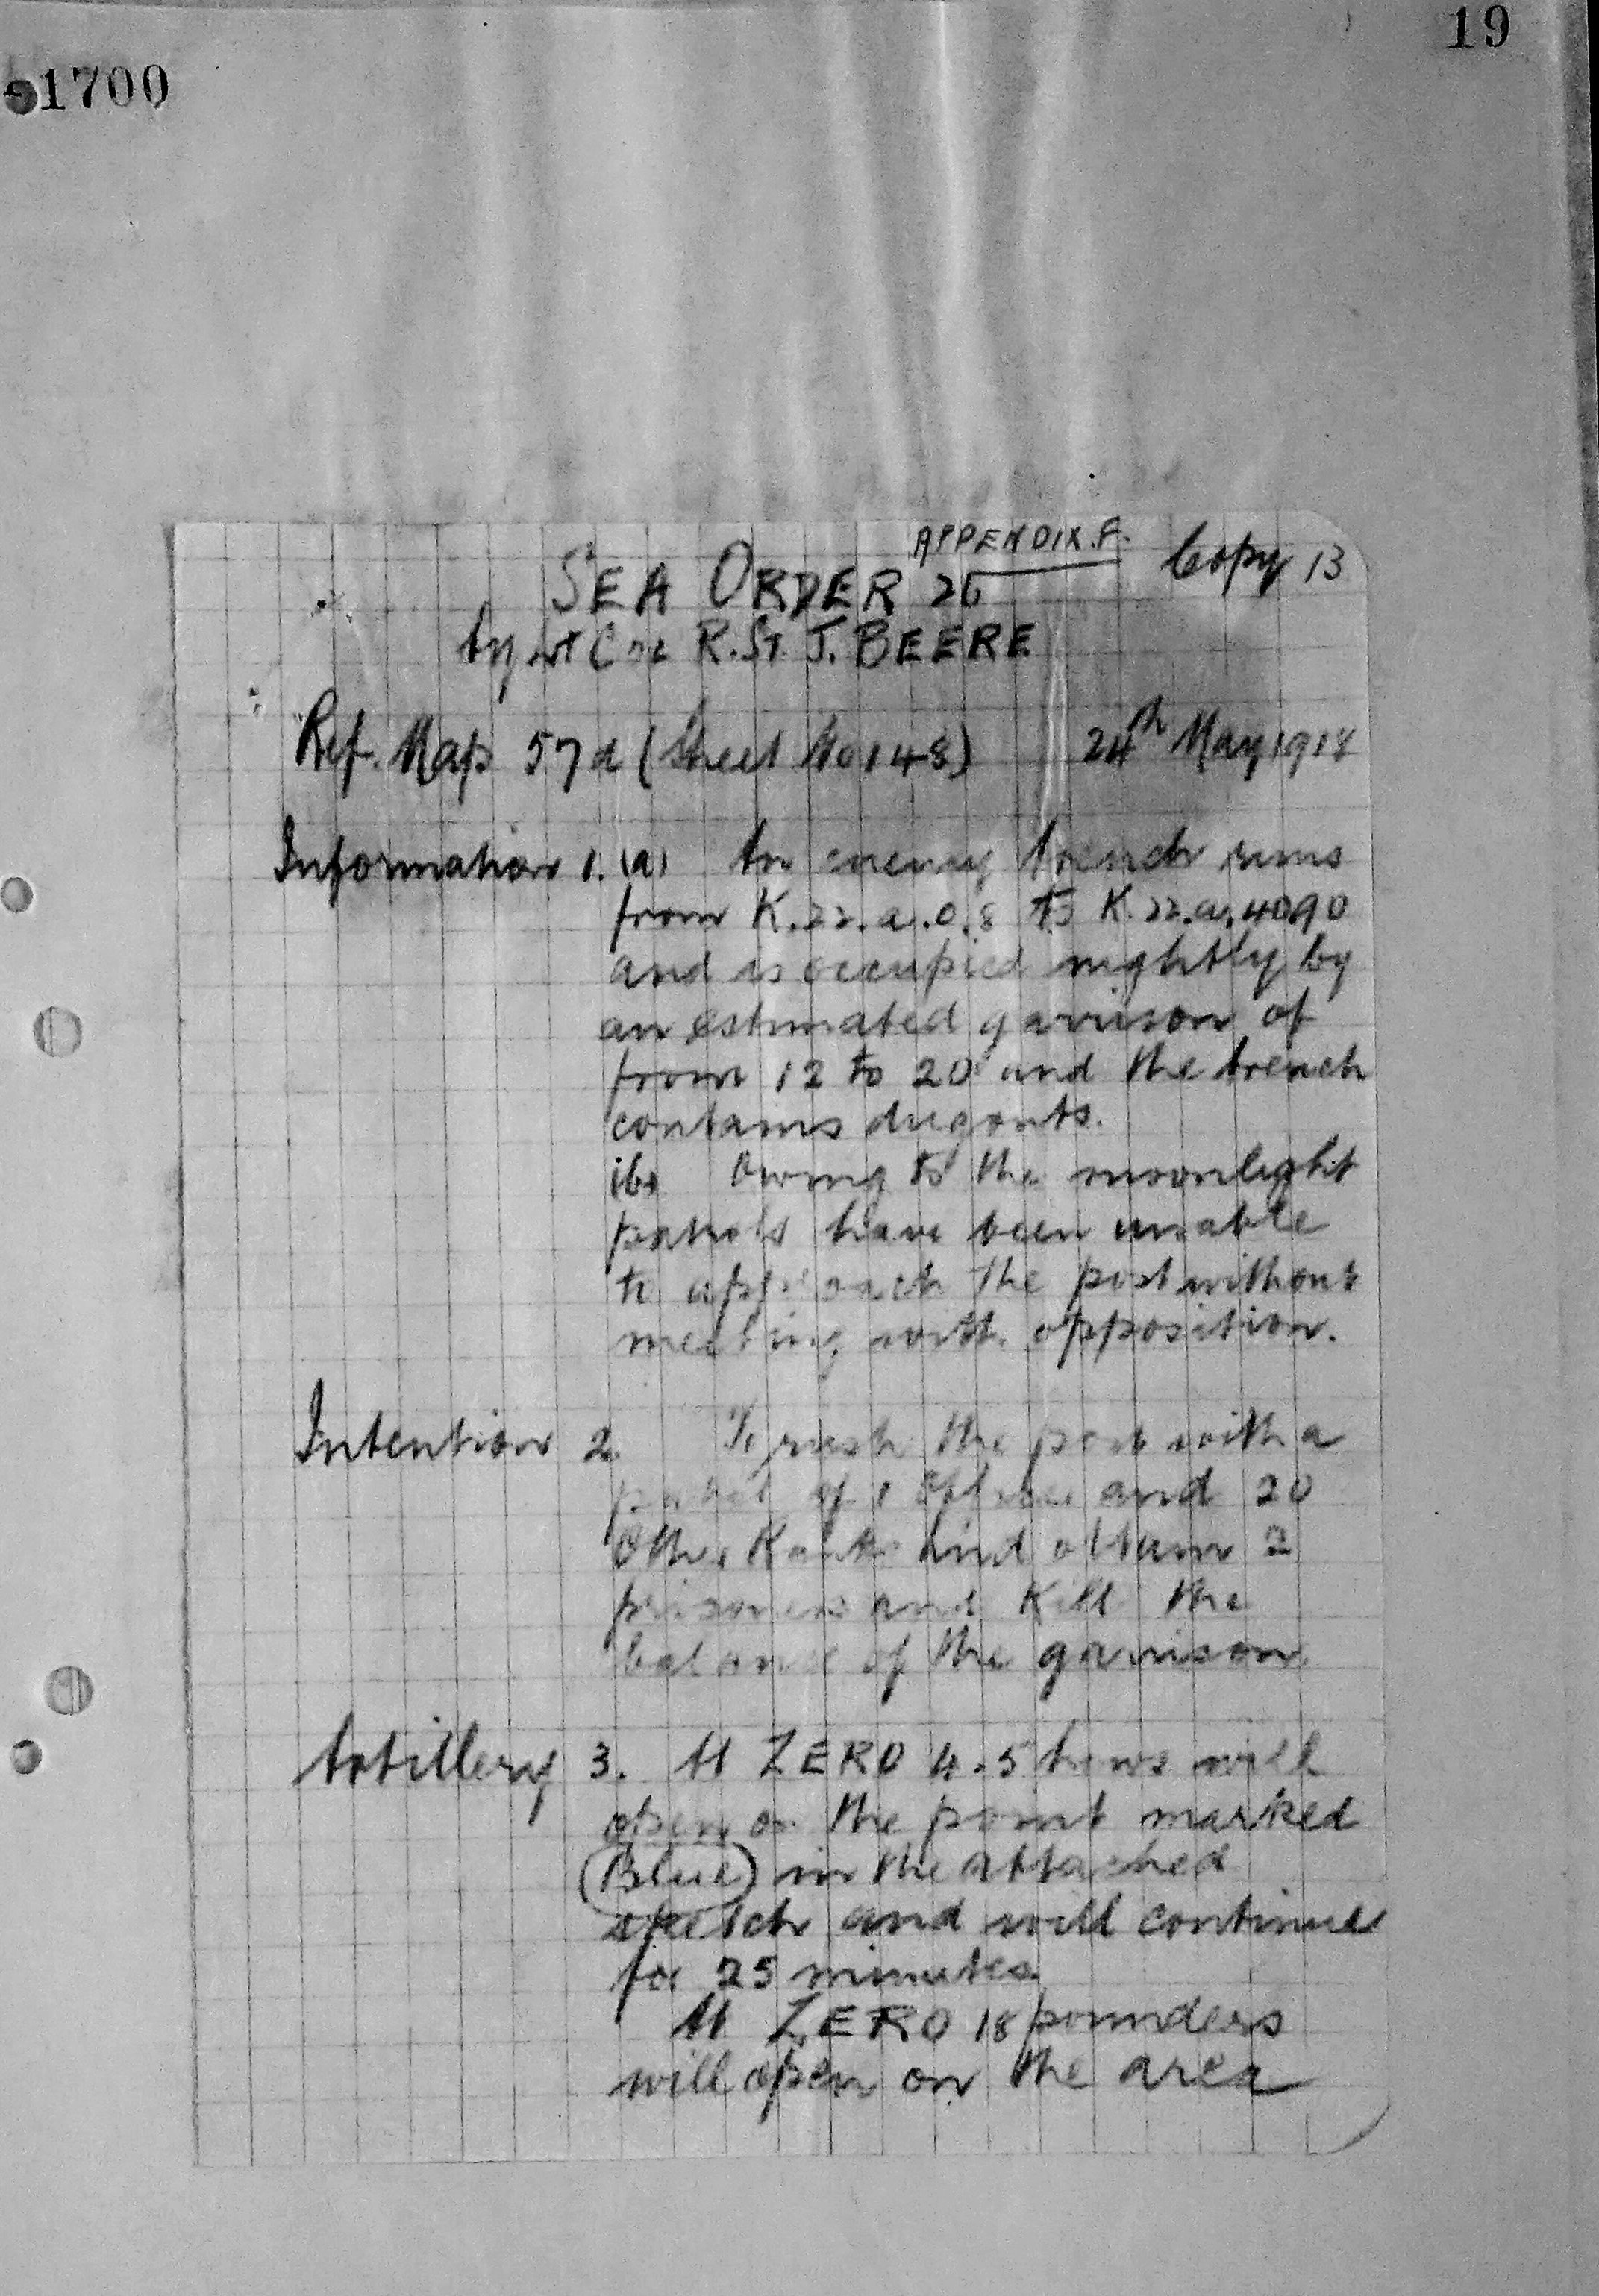 19
1700
APPENDIX.F.
Copy 13
SEA ORDER 26
by Lt Col R.St. J. BEERE
Ref. Map 57d (Sheet No 148) 24th May 1918
Information 1. (a) An enemy trench runs
from K.22.a.0.8 to K.22.a.4090
and is occupied nightly by
an estimated garrison of
from 12 to 20 and the trench
contains dugouts.
(b) Owing to the moonlight
patrols have been unable
to approach the post without
meeting with opposition.
Intention 2. To rush the post with a
patrol of 1 Officer and 20
Other Ranks and obtain 2
prisoners and Kill the
balance of the garrison.
Artillery 3. At ZERO 4.5 hows will
open on the point marked
(Blue) in the attached
sketch and will continue
for 25 minutes.
At ZERO 18 pounders
will open on the area